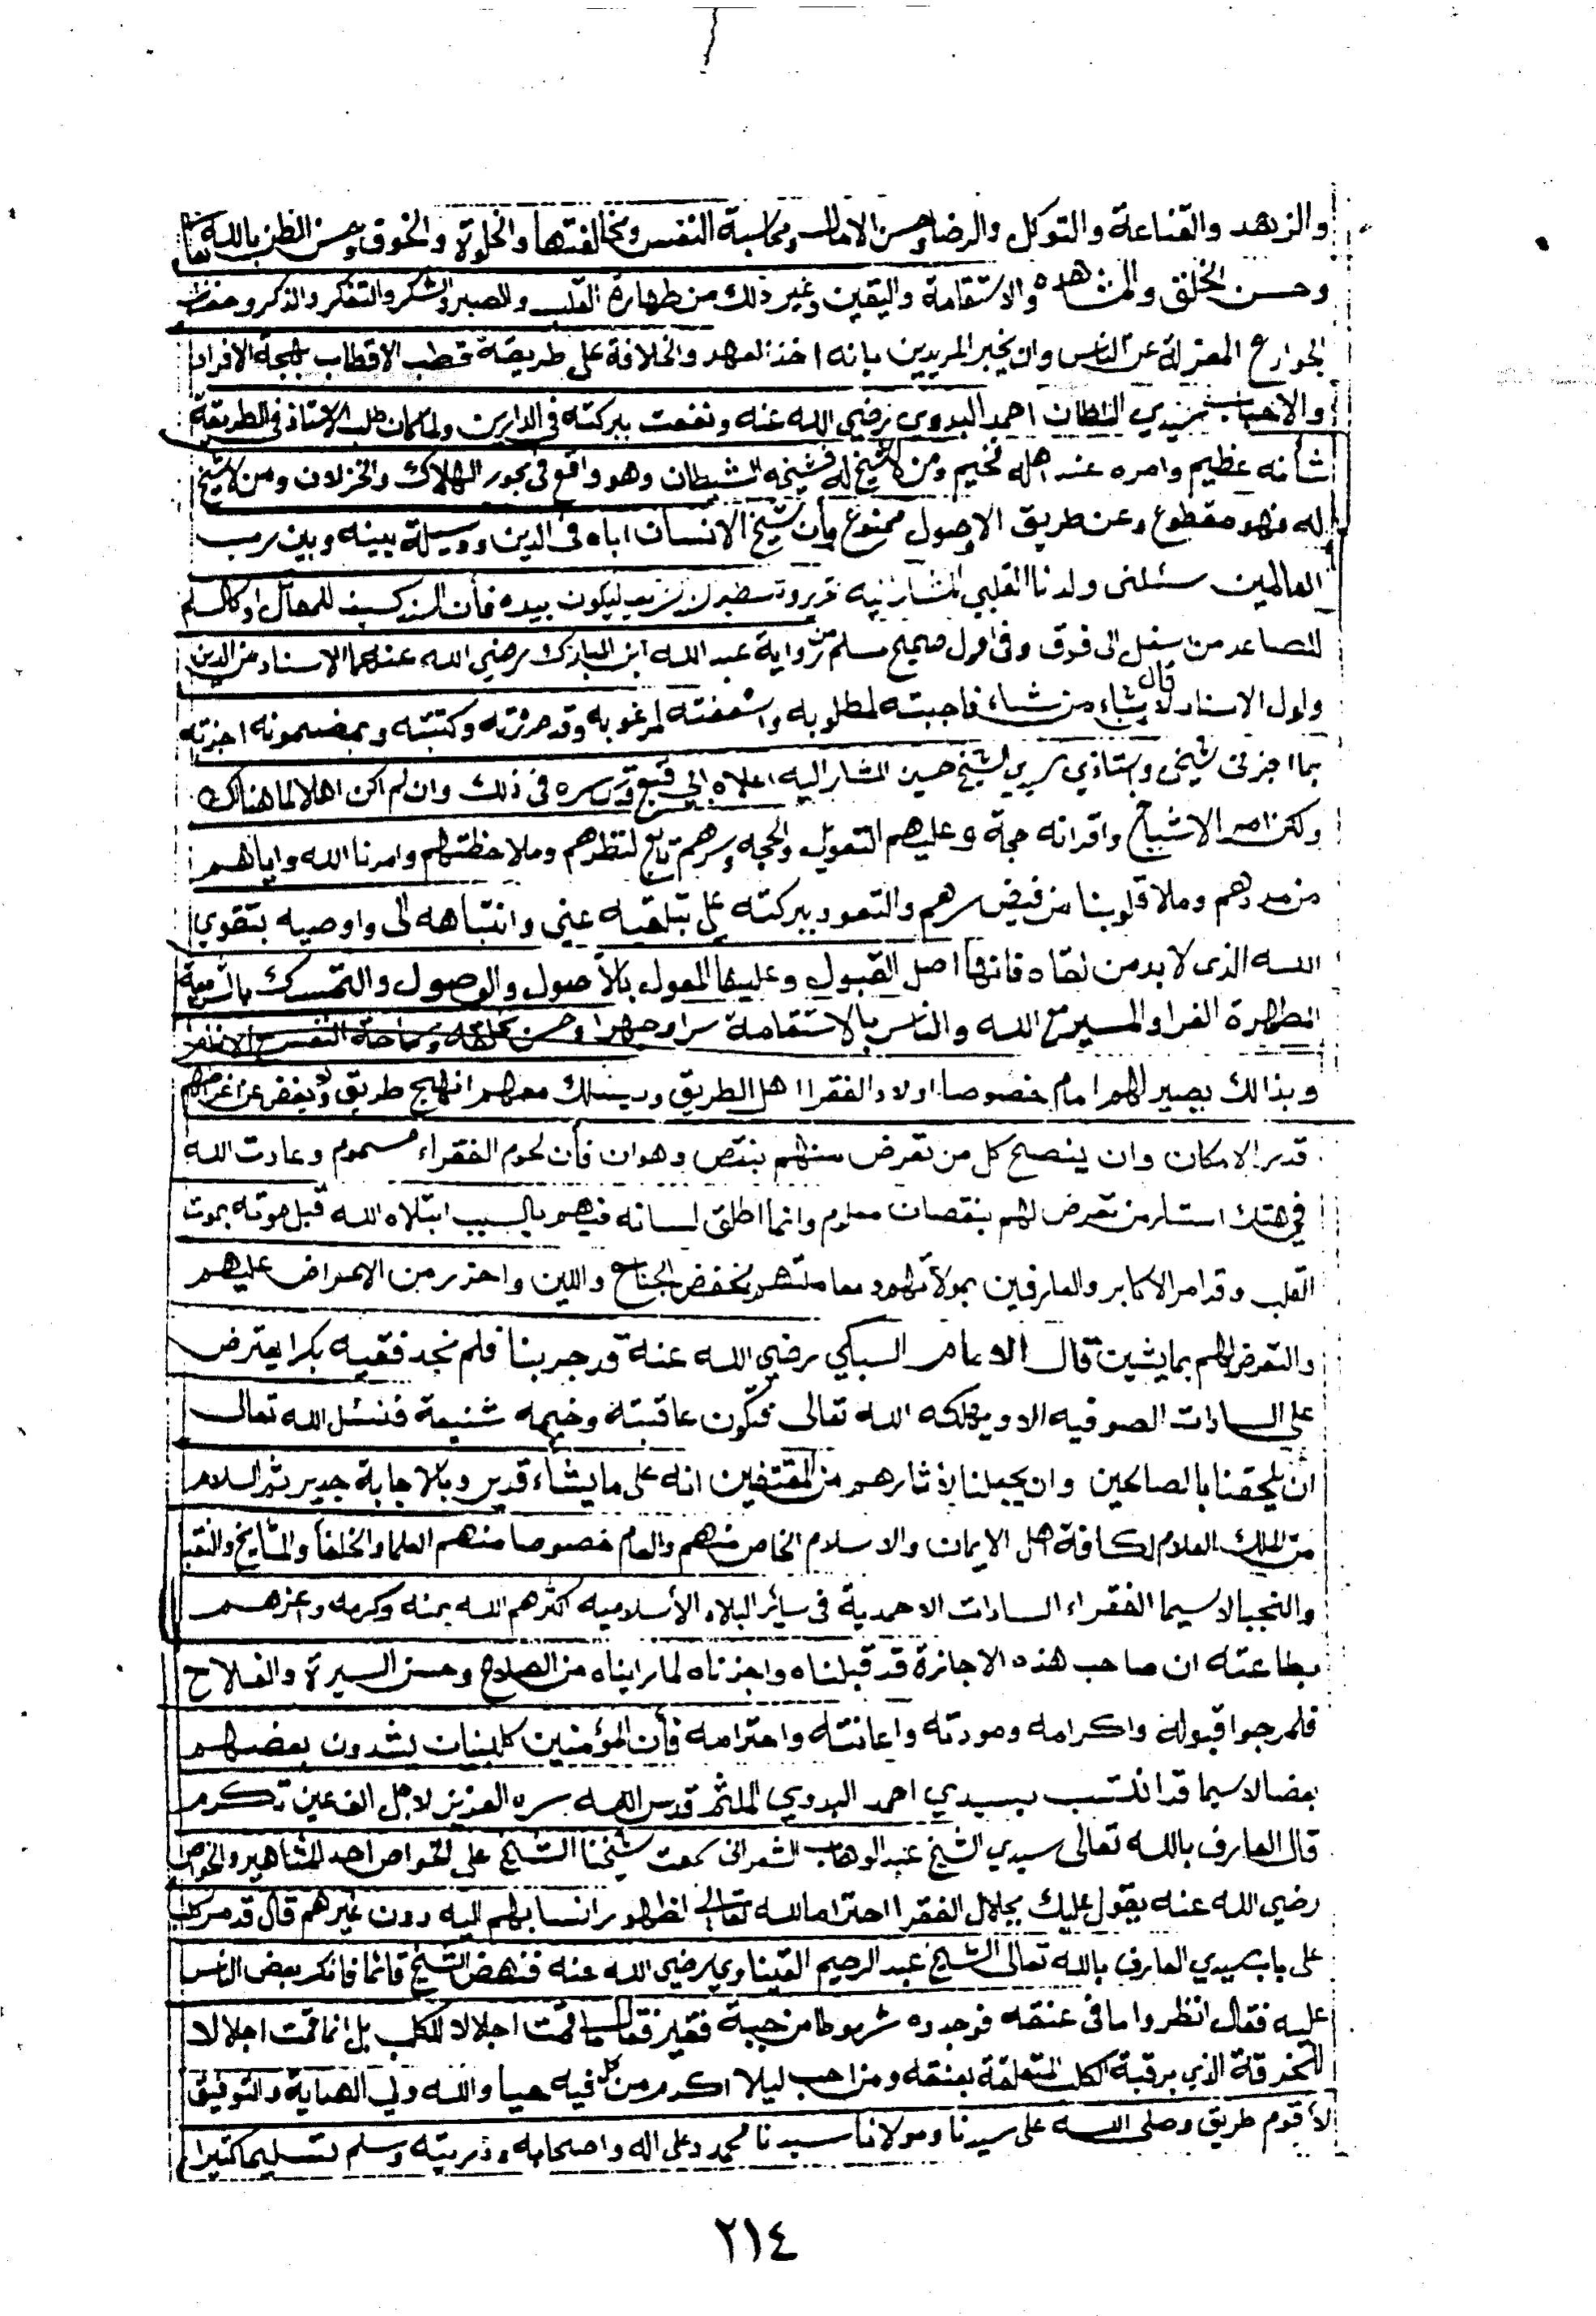 والزهد والقناعة والتوكل والرضا وحسن الامال ومحاسبة النفس ومخالفتها والخلوة والخوف وحسن الظن بالله تعالى
وحسن الخلق والمشاهده والاستقامة واليقين وغير ذلك من طهارة القلب والصبر والشكر والتفكر والذكر وحفظ
الجوارح المعزلة عن الناس وان يخبر المريدين بانه اخذ العهد والخلافة على طريقة قطب الاقطاب بهجة الافراد
والاحباب سيدي السلطان احمد البدوي رضي الله عنه ونفعت ببركته في الدارين ولما كان طلب الاستاذ في الطريقة
شأنه عظيم وامره عند اهله فخيم ومن لا شيخ له فشيخه الشيطان وهو واقع في بحور الهلاك والخزلان ومن لا شيخ
له فهو مقطوع وعن طريق الاصول ممنوع وأن شيخ الانسان اباه في الدين ووسيلة بينه وبين رب
العالمين سئلنى ولدنا القلبي المشار اليه تحرير وتسطير ليكون بيده فأن السند كسيف للمقاتل او كالسلم
للصاعد من اسفل الى فوق وفي اول صحيح مسلم من رواية عبد الله ابن المبارك رضي الله عنهما الاسناد من الدين
ولولا الاسناد لقال من شاء ما شاء فاجبته لمطلوبه واسعفته لمرغوبه وقد حررته وكتبته وبمضمونه اجزته
بما اجزنى شيخى واستاذي سيدي الشيخ حسين المشار اليه اعلاه قدس سره في ذلك وان لم اكن اهلا لما هناك
ولكن امر الاشياخ واقرانه حجة وعليهم التعويل والحجه وسرهم تابع لنظرهم وملاحظتهم وامرنا الله واياهم
من مددهم وملا قلوبنا من فيض سرهم والتعود ببركته على تلقيه عني وانتباهه لى واوصيه بتقوي
الله الذى لا بد من لقاه فانها اصل القبول وعليها المعول بالأصول والوصول والتمسك بالشريعة
المطهرة الغرا والسير مع الله والناس بالاستقامة سرا وجهرا وحسن
وبذالك يصير لهم امام خصوصا اولاد الفقرا اهل الطريق ويسلك معهم انهج طريق ويغض عن
قدر الامكان وان ينصح كل من تعرض منهم بنقص وهوان فأن لحوم الفقراء مسموم وعادت الله
في هتك استار من تعرض لهم بنقصان معلوم وانما اطلق لسانه فيهم بالسبب ابتلاه الله قبل موته بموت
القلب وقد امر الاكابر والعارفين بمولاتهم ومعاملتهم بخفض الجناح واللين واحذر من الاعراض عليهم
والتعرض لهم بما يشين قال الامام السبكي رضي الله عنه قد جربنا فلم نجد فقيه بكرا يعترض
على السادات الصوفيه الا ويهلكه الله تعالى فتكون عاقبته وخيمه شنيعة فنسئل الله تعالى
ان يلحقنا بالصالحين وان يجعلنا لأثارهم من المقتفين انه على ما يشاء قدير وبالاجابة جدير ثم السلام
من الملك العلام لكافة اهل الايمان والاسلام الخاص منهم والعام خصوصا منهم العلما والخلفأ والمشايخ والنقبا
والنجبا لاسيما الفقراء السادات الاحمدية في سائر البلاد الأسلاميه كثرهم الله بمنه وكرمه واعزهم
بطاعته ان صاحب هذه الاجازة قد قبلناه واجزناه لما رايناه من الصلاح وحسن السيرة والفلاح
فلمرجوا قبوله واكرامه ومودته واعانته واحترامه فأن المؤمنين كالبنيان يشدون بعضهم
بعضا لاسيما قد انتسب بسيدي احمد البدوي الملثم قدس الله سره العزيز لاجل الف عين تكرم
قال العارف بالله تعالى سيدي الشيخ عبد الوهاب الشعرانى سمعت شيخنا الشيخ على الخواص احد المشاهير والخواص
رضي الله عنه يقول عليك بجلال الفقرا احتراما لله تعالى اظهور انسابهم اليه دون غيرهم قال قد مر كلب
على باب سيدي العارف بالله تعالى الشيخ عبد الرحيم القيناوي رضي الله عنه فنهض الشيخ قائما فانكر بعض الناس
عليه فقال انظروا ما في عنقه فوجدوه شرموطا من جبة فقير فقال ما قمت اجلالا للكلب بل انما قمت اجلالا
للخرقة الذي برقبة الكلب المتعلقة بعنقه ومن احب ليلا اكرم من كل فيه حيا والله ولي الهداية والتوفيق
لأقوم طريق وصلى الله على سيدنا ومولانا سيدنا محمد وعلى اله واصحابه وذريته وسلم تسليما كثيرا
٢١٤